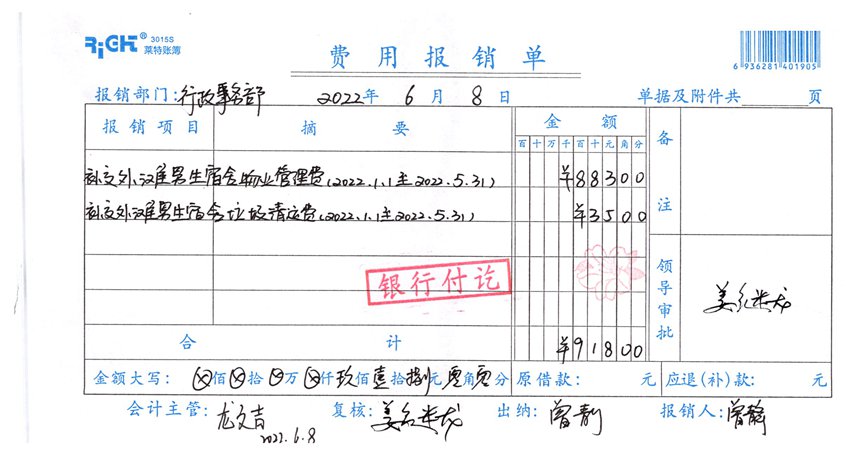 RiGHT® 3015S
莱特账簿
费用报销单
6 936281 401905
报销部门:行政事务部 2022年 6月 8日 单据及附件共 页
报销项目 摘要 金额 备注
百十万千百十元角分
补交外滩男生宿舍物业管理费(2022.1.1至2022.5.31) ¥88300
补交外滩男生宿舍垃圾清运费(2022.1.1至2022.5.31) ¥3500
银行付讫
领导审批
合计 ¥91800
金额大写: ⊗佰⊗拾⊗万⊗仟玖佰壹拾捌元零角零分 原借款: 元 应退(补)款: 元
会计主管: 龙文吉 复核: 出纳: 曾静 报销人: 曾静
2022.6.8